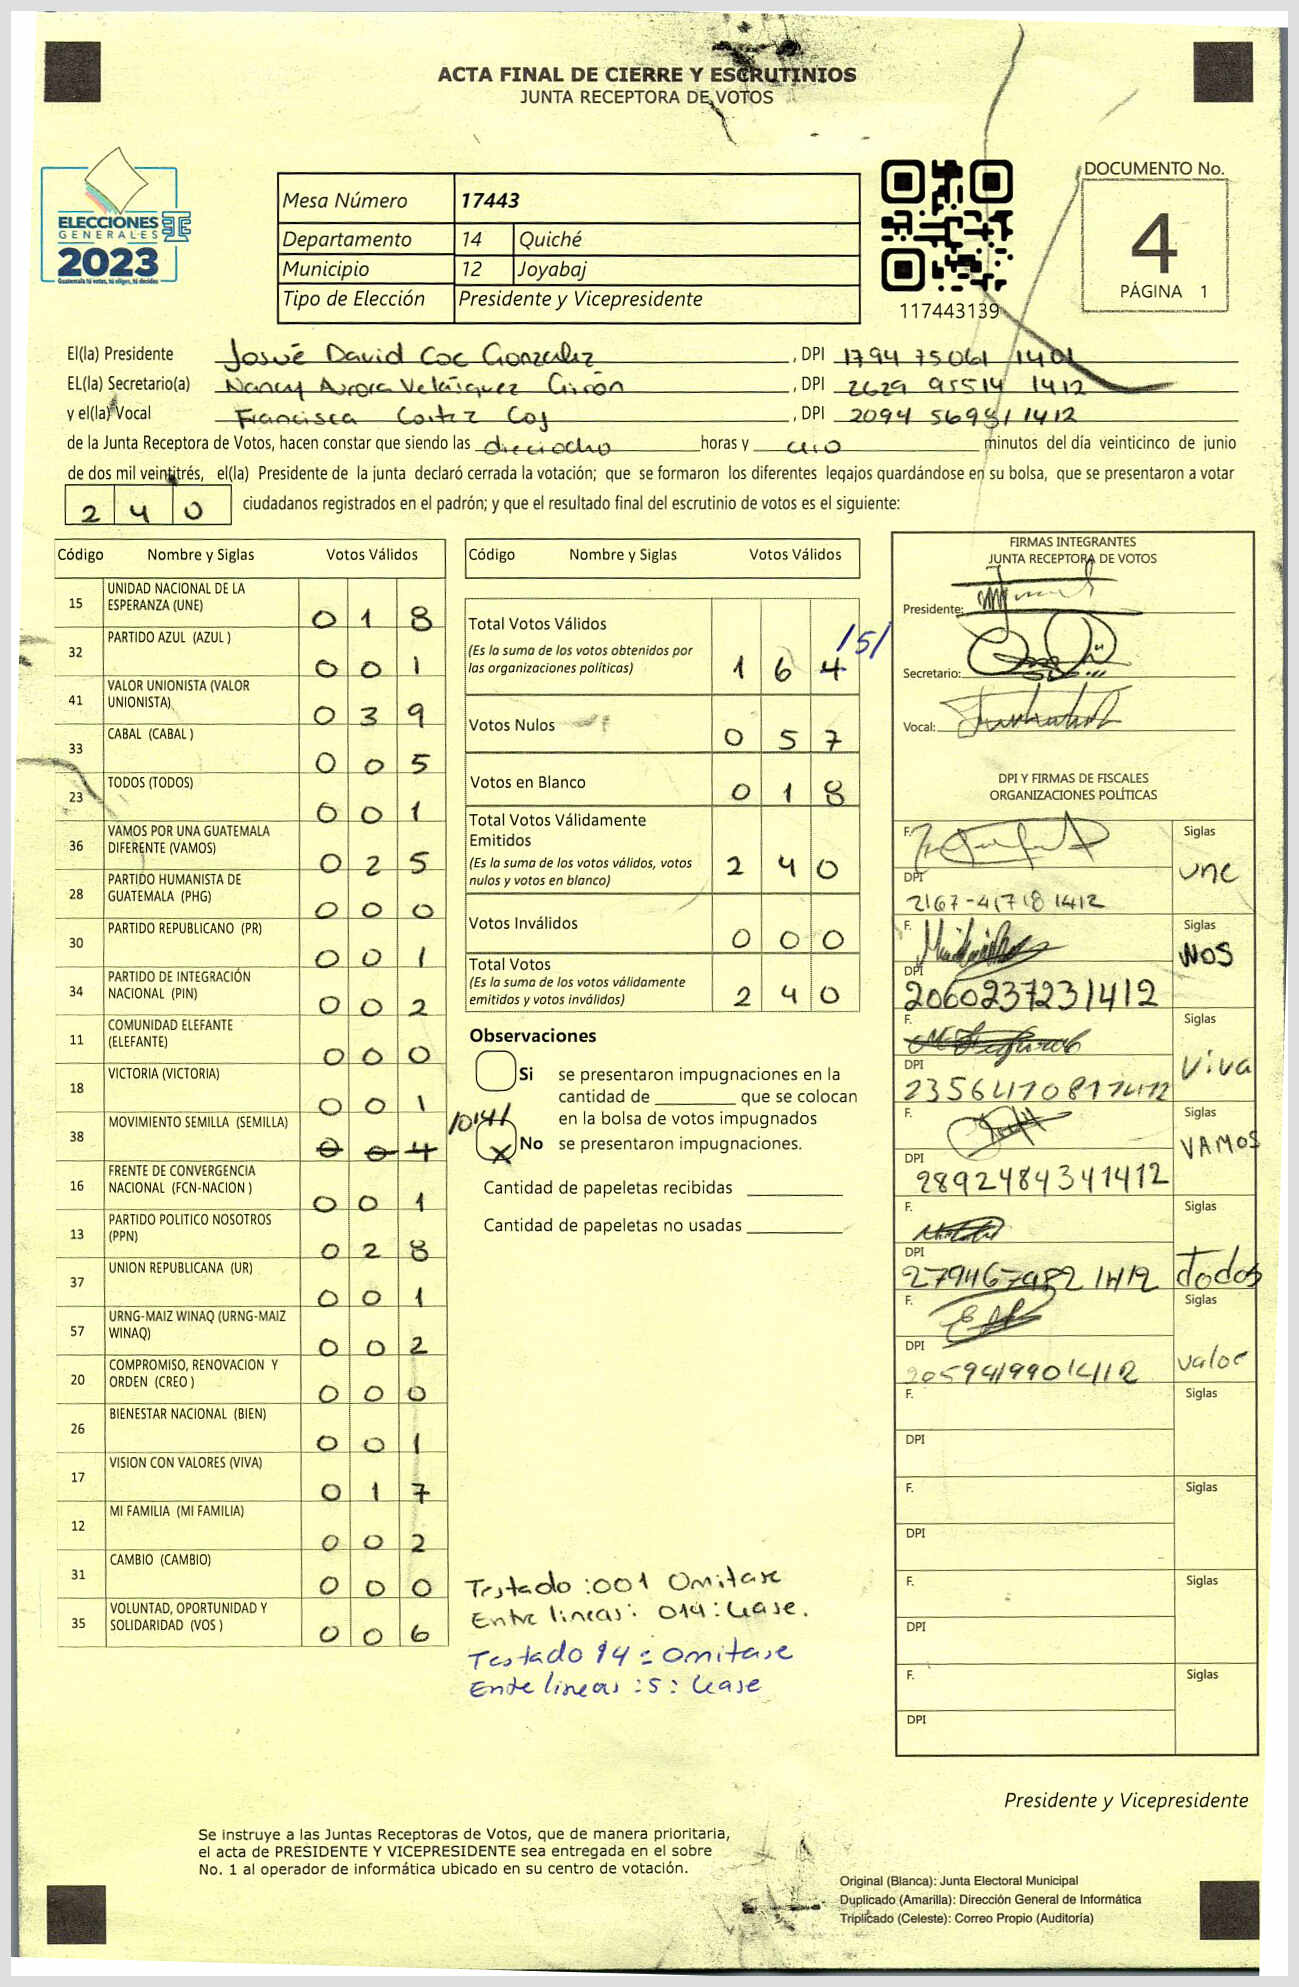 ACTA FINAL DE CIERRE Y ESCRUTINIOS
JUNTA RECEPTORA DE VOTOS
ELECCIONES
GENERALES
2023
Guatemala tú votas, tú eliges, tú decides
Mesa Número 17443
Departamento 14 Quiché
Municipio 12 Joyabaj
Tipo de Elección Presidente y Vicepresidente
117443139
DOCUMENTO No.
4
PÁGINA 1
El(la) Presidente Josué David Coc Gonzalez , DPI 1794 75061 1401
EL(la) Secretario(a) Nancy Aurora Velásquez Girón , DPI 2629 95514 1412
y el(la) Vocal Francisca Cortez Coj , DPI 2094 56951 1412
de la Junta Receptora de Votos, hacen constar que siendo las dieciocho horas y minutos del día veinticinco de junio
de dos mil veintitrés, el(la) Presidente de la junta declaró cerrada la votación; que se formaron los diferentes legajos guardándose en su bolsa, que se presentaron a votar
240 ciudadanos registrados en el padrón; y que el resultado final del escrutinio de votos es el siguiente:
Código Nombre y Siglas Votos Válidos
15 UNIDAD NACIONAL DE LA ESPERANZA (UNE) 018
32 PARTIDO AZUL (AZUL ) 001
41 VALOR UNIONISTA (VALOR UNIONISTA) 039
33 CABAL (CABAL ) 005
23 TODOS (TODOS) 001
36 VAMOS POR UNA GUATEMALA DIFERENTE (VAMOS) 025
28 PARTIDO HUMANISTA DE GUATEMALA (PHG) 000
30 PARTIDO REPUBLICANO (PR) 001
34 PARTIDO DE INTEGRACIÓN NACIONAL (PIN) 002
11 COMUNIDAD ELEFANTE (ELEFANTE) 000
18 VICTORIA (VICTORIA) 001
38 MOVIMIENTO SEMILLA (SEMILLA) 004 /014/
16 FRENTE DE CONVERGENCIA NACIONAL (FCN-NACION ) 001
13 PARTIDO POLITICO NOSOTROS (PPN) 028
37 UNION REPUBLICANA (UR) 001
57 URNG-MAIZ WINAQ (URNG-MAIZ WINAQ) 002
20 COMPROMISO, RENOVACION Y ORDEN (CREO ) 000
26 BIENESTAR NACIONAL (BIEN) 001
17 VISION CON VALORES (VIVA) 017
12 MI FAMILIA (MI FAMILIA) 002
31 CAMBIO (CAMBIO) 000
35 VOLUNTAD, OPORTUNIDAD Y SOLIDARIDAD (VOS ) 006
Código Nombre y Siglas Votos Válidos
Total Votos Válidos 164 /5/
(Es la suma de los votos obtenidos por
las organizaciones políticas)
Votos Nulos 057
Votos en Blanco 018
Total Votos Válidamente
Emitidos 240
(Es la suma de los votos válidos, votos
nulos y votos en blanco)
Votos Inválidos 000
Total Votos 240
(Es la suma de los votos válidamente
emitidos y votos inválidos)
Observaciones
Si se presentaron impugnaciones en la
cantidad de ________ que se colocan
en la bolsa de votos impugnados
X No se presentaron impugnaciones.
Cantidad de papeletas recibidas
Cantidad de papeletas no usadas
Testado :001 Omitase
Entre lineas: 014: Lease.
Testado 14 : Omitase
Entre lineas :5: Lease
FIRMAS INTEGRANTES
JUNTA RECEPTORA DE VOTOS
Presidente:
Secretario:
Vocal:
DPI Y FIRMAS DE FISCALES
ORGANIZACIONES POLÍTICAS
F. Siglas
une
DPI
F. Siglas
NOS
DPI
2060237231412
F. Siglas
Viva
DPI
F. Siglas
VAMOS
DPI
2892484341412
F. Siglas
Todos
DPI
F. Siglas
valor
DPI
F. Siglas
DPI
F. Siglas
DPI
F. Siglas
DPI
F. Siglas
DPI
Presidente y Vicepresidente
Se instruye a las Juntas Receptoras de Votos, que de manera prioritaria,
el acta de PRESIDENTE Y VICEPRESIDENTE sea entregada en el sobre
No. 1 al operador de informática ubicado en su centro de votación.
Original (Blanca): Junta Electoral Municipal
Duplicado (Amarilla): Dirección General de Informática
Triplicado (Celeste): Correo Propio (Auditoría)